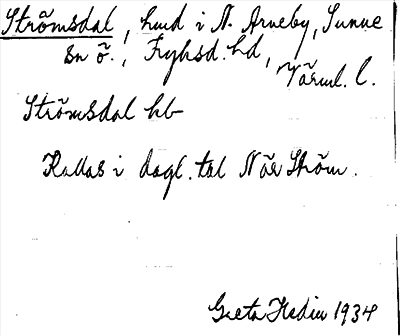 Strömsdal, hmd i N. Arneby, Sunne
sn ö., Fryksd. hd,
Värml. l.
Strömsdal hb
Kallas i dagl. tal När Ström.
Greta Hedin 1934